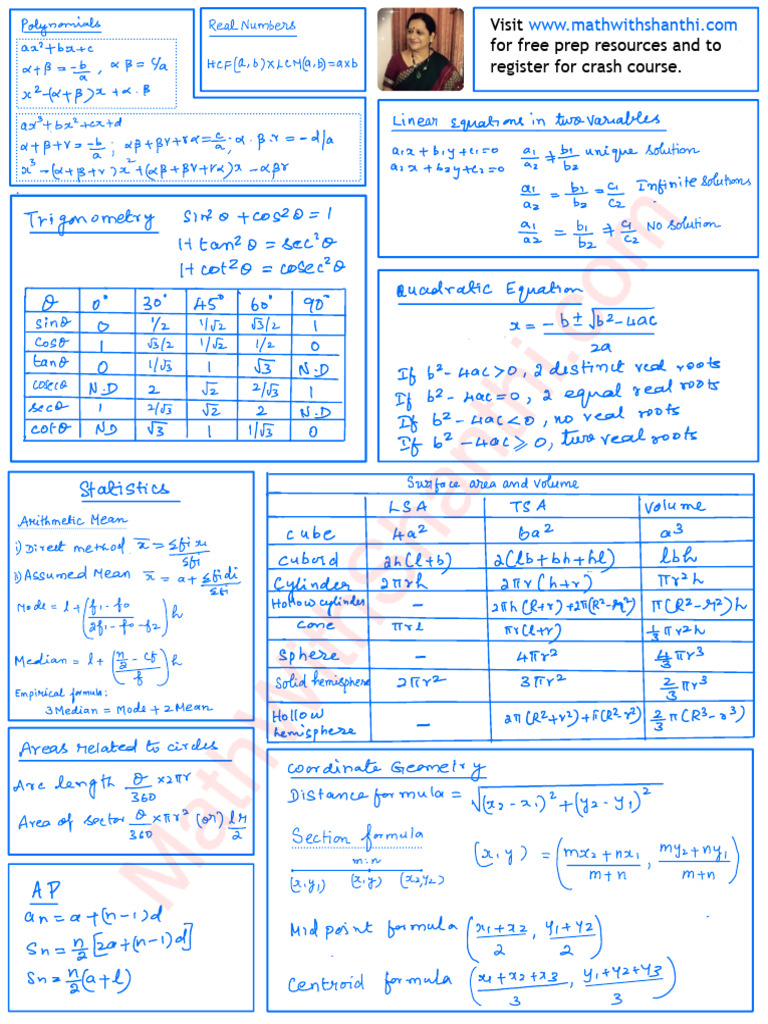 Polynomials
ax²+bx+c
α+β = -b/a , αβ = c/a
x²-(α+β)x+α.β
ax³+bx²+cx+d
α+β+γ = -b/a ; αβ+βγ+γα = c/a . α.β.γ = -d/a
x³-(α+β+γ)x²+(αβ+βγ+γα)x-αβγ
Real Numbers
HCF(a,b)×LCM(a,b)=a×b
Visit www.mathwithshanthi.com
for free prep resources and to
register for crash course.
Linear Equations in two variables
a₁x+b₁y+c₁=0 a₁/a₂ ≠ b₁/b₂ unique solution
a₂x+b₂y+c₂=0
a₁/a₂ = b₁/b₂ = c₁/c₂ Infinite solutions
a₁/a₂ = b₁/b₂ ≠ c₁/c₂ No solution
Trigonometry sin²θ+cos²θ=1
1+tan²θ=sec²θ
1+cot²θ=cosec²θ
θ 0° 30° 45° 60° 90°
sinθ 0 1/2 1/√2 √3/2 1
cosθ 1 √3/2 1/√2 1/2 0
tanθ 0 1/√3 1 √3 N.D
cosecθ N.D 2 √2 2/√3 1
secθ 1 2/√3 √2 2 N.D
cotθ ND √3 1 1/√3 0
Quadratic Equation
x = -b±√b²-4ac / 2a
If b²-4ac>0, 2 distinct real roots
If b²-4ac=0, 2 equal real roots
If b²-4ac<0, no real roots
If b²-4ac≥0, two real roots
Statistics
Arithmetic Mean
i) Direct method x̄ = Σfixi/Σfi
ii) Assumed Mean x̄ = a+Σfidi/Σfi
Mode = l+(f₁-f₀/2f₁-f₀-f₂)h
Median = l+(n/2-cf/f)h
Empirical formula:
3Median = Mode+2Mean
Surface area and volume
LSA TSA Volume
cube 4a² 6a² a³
cuboid 2h(l+b) 2(lb+bh+hl) lbh
Cylinder 2πrh 2πr(h+r) πr²h
Hollow cylinder - 2πh(R+r)+2π(R²-r²) π(R²-r²)h
cone πrl πr(l+r) 1/3πr²h
Sphere - 4πr² 4/3πr³
Solid hemisphere 2πr² 3πr² 2/3πr³
Hollow hemisphere - 2π(R²+r²)+π(R²-r²) 2/3π(R³-r³)
Areas related to circles
Arc length θ/360×2πr
Area of sector θ/360×πr² (or) lr/2
AP
an=a+(n-1)d
Sn=n/2[2a+(n-1)d]
Sn=n/2(a+l)
Coordinate Geometry
Distance formula = √(x₂-x₁)²+(y₂-y₁)²
Section formula
m:n
(x₁y₁) (x,y) (x₂,y₂) (x,y) = (mx₂+nx₁/m+n, my₂+ny₁/m+n)
Mid point formula (x₁+x₂/2, y₁+y₂/2)
Centroid formula (x₁+x₂+x₃/3, y₁+y₂+y₃/3)
Mathwithshanthi.com